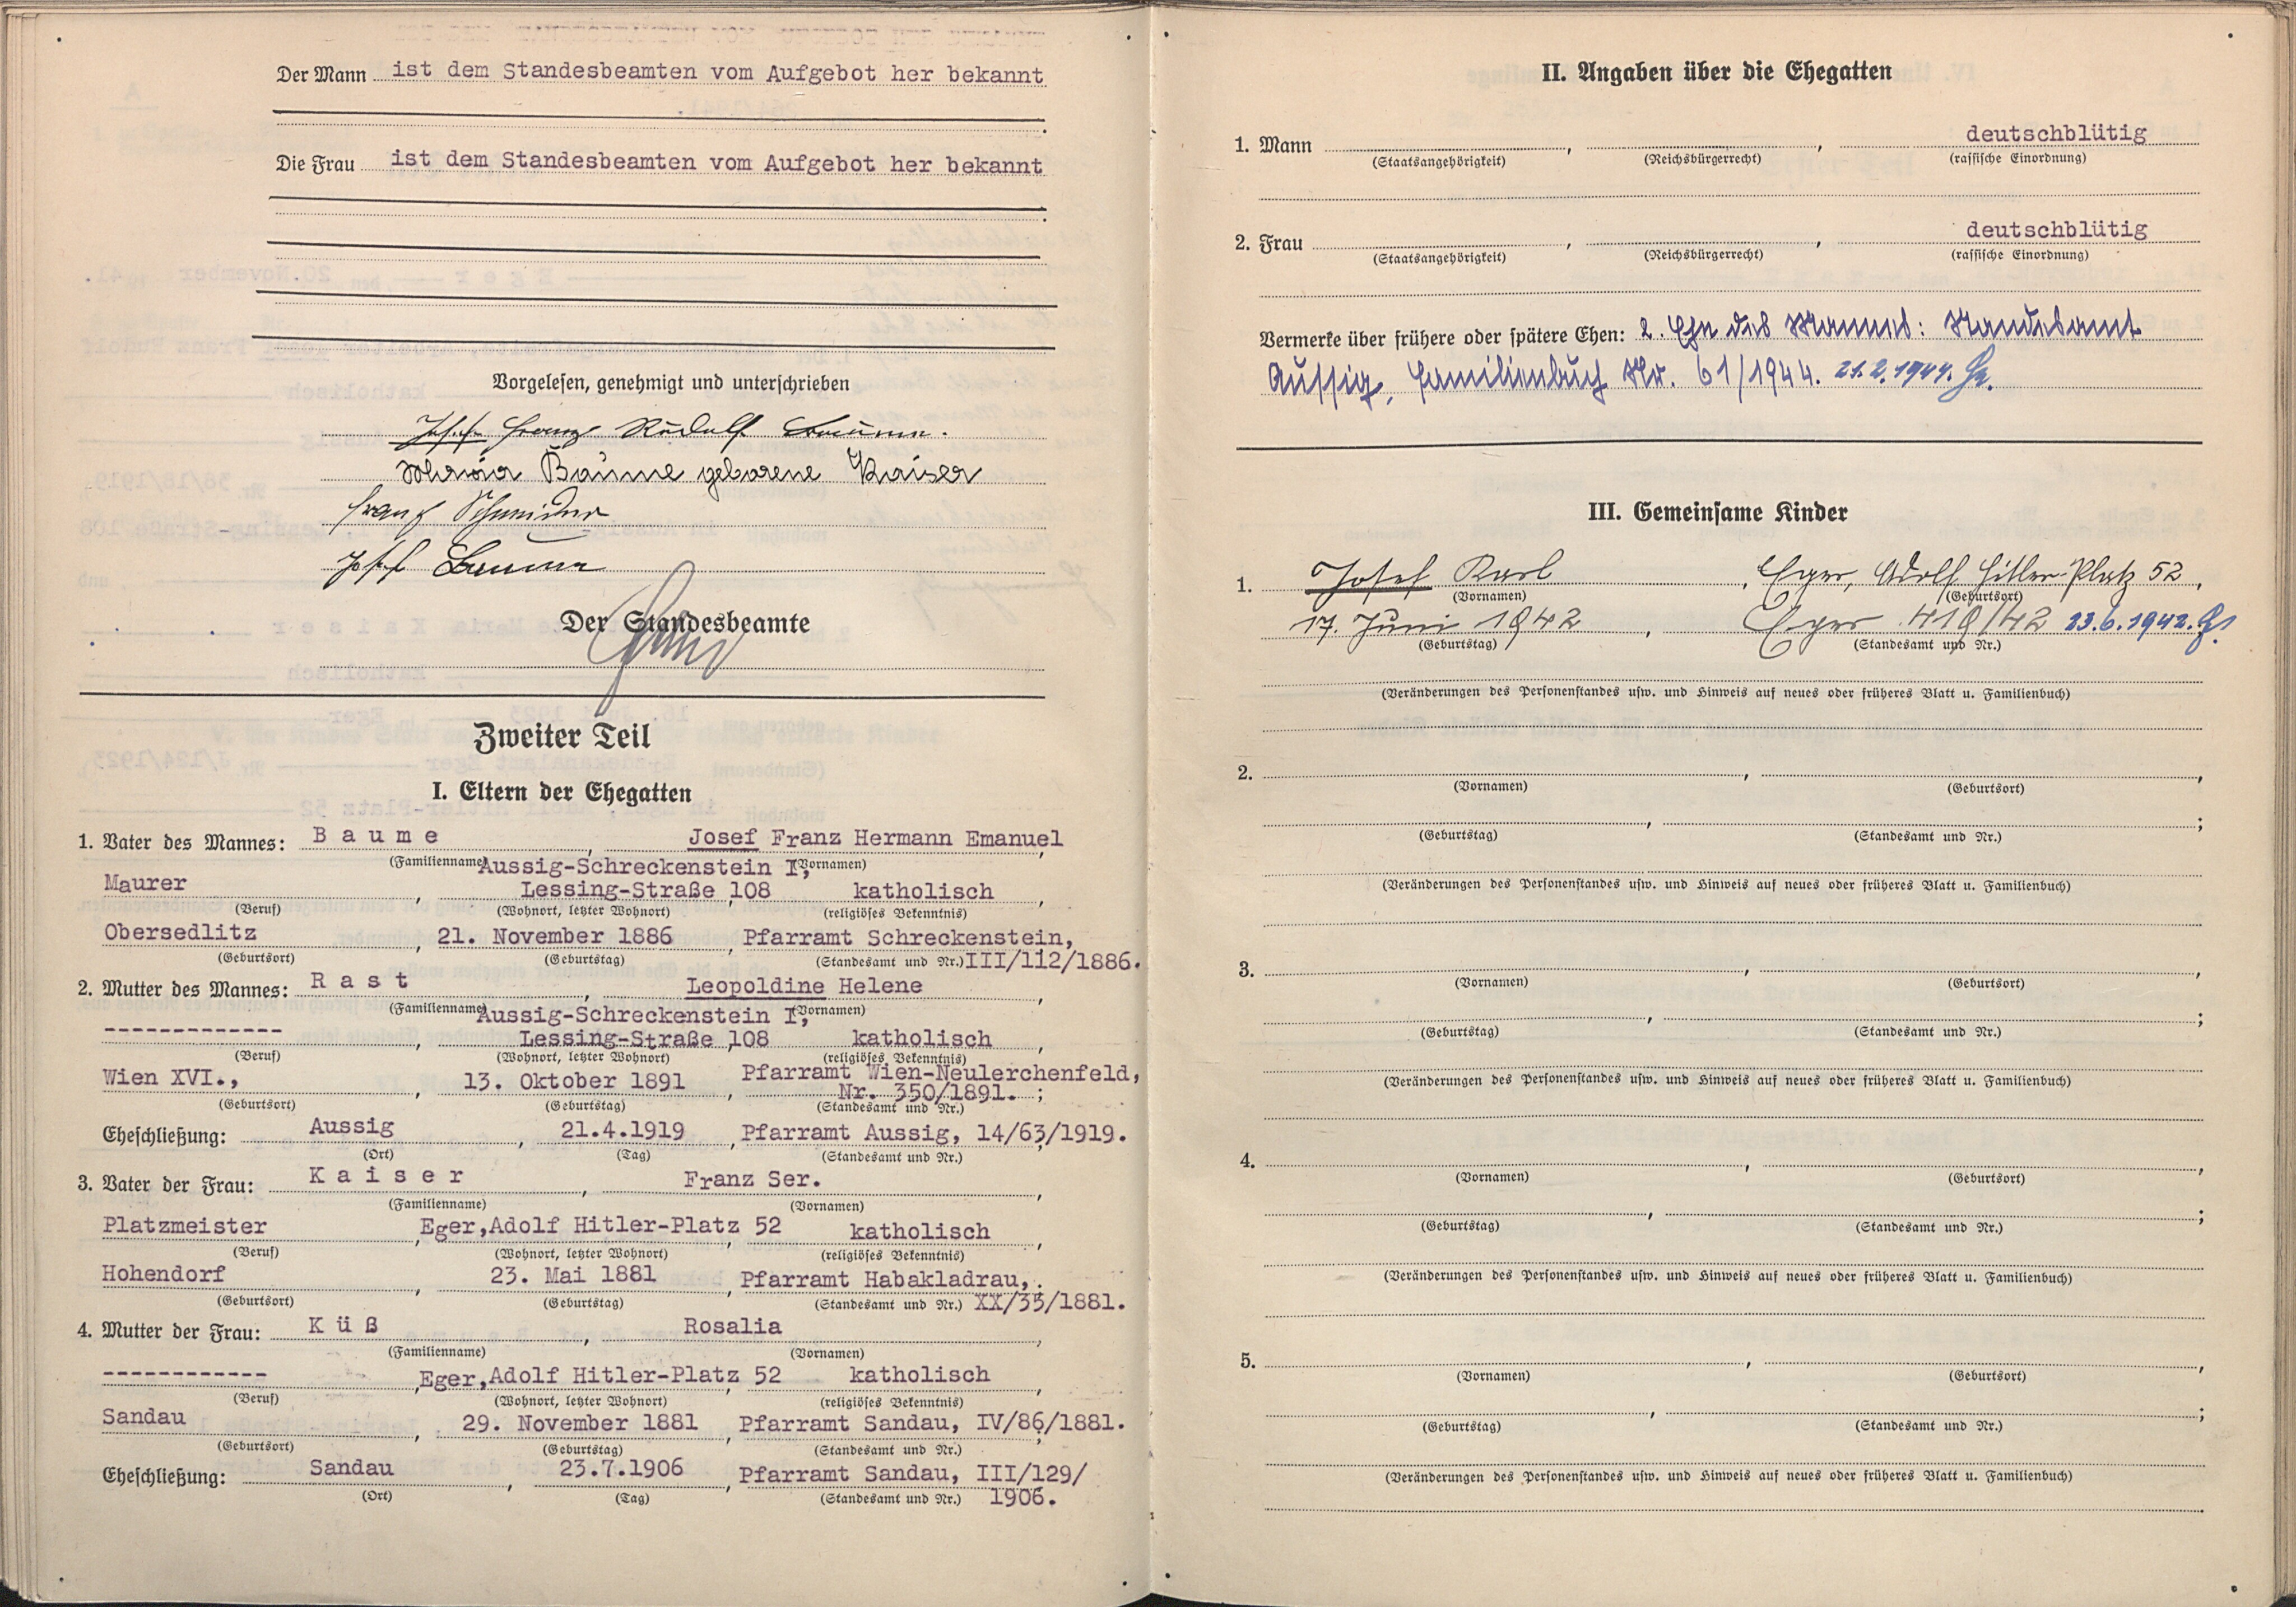 Der Mann ist dem Standesbeamten vom Aufgebot her bekannt
Die Frau ist dem Standesbeamten vom Aufgebot her bekannt
Vorgelesen, genehmigt und unterschrieben
Josef Franz Rudolf Baume.
Maria Baume geborene Kaiser
Franz Schneider
Josef Baume
Der Standesbeamte
Zweiter Teil
I. Eltern der Ehegatten
1. Vater des Mannes: Baume, Josef Franz Hermann Emanuel,
(Familienname) Aussig-Schreckenstein I, (Vornamen)
Maurer, Lessing-Straße 108, katholisch,
(Beruf) (Wohnort, letzter Wohnort) (religiöses Bekenntnis)
Obersedlitz, 21. November 1886, Pfarramt Schreckenstein,
(Geburtsort) (Geburtstag) (Standesamt und Nr.) III/112/1886.
2. Mutter des Mannes: Rast, Leopoldine Helene,
(Familienname) Aussig-Schreckenstein I, (Vornamen)
-------------, Lessing-Straße 108, katholisch,
(Beruf) (Wohnort, letzter Wohnort) (religiöses Bekenntnis)
Wien XVI., , 13. Oktober 1891, Pfarramt Wien-Neulerchenfeld,
Nr. 350/1891. ;
(Geburtsort) (Geburtstag) (Standesamt und Nr.)
Eheschließung: Aussig, 21.4.1919, Pfarramt Aussig, 14/63/1919.
(Ort) (Tag) (Standesamt und Nr.)
3. Vater der Frau: Kaiser, Franz Ser.,
(Familienname) (Vornamen)
Platzmeister, Eger, Adolf Hitler-Platz 52, katholisch,
(Beruf) (Wohnort, letzter Wohnort) (religiöses Bekenntnis)
Hohendorf, 23. Mai 1881, Pfarramt Habakladrau,
(Geburtsort) (Geburtstag) (Standesamt und Nr.) XX/35/1881.
4. Mutter der Frau: Küß, Rosalia,
(Familienname) (Vornamen)
------------, Eger, Adolf Hitler-Platz 52, katholisch,
(Beruf) (Wohnort, letzter Wohnort) (religiöses Bekenntnis)
Sandau, 29. November 1881, Pfarramt Sandau, IV/86/1881.
(Geburtsort) (Geburtstag) (Standesamt und Nr.)
Eheschließung: Sandau, 23.7.1906, Pfarramt Sandau, III/129/
(Ort) (Tag) (Standesamt und Nr.) 1906.
II. Angaben über die Ehegatten
1. Mann , , deutschblütig
(Staatsangehörigkeit) (Reichsbürgerrecht) (rassische Einordnung)
2. Frau , , deutschblütig
(Staatsangehörigkeit) (Reichsbürgerrecht) (rassische Einordnung)
Vermerke über frühere oder spätere Ehen: 2. Ehe des Mannes: Standesamt
Aussig, Familienbuch Nr. 61/1944. 21.2.1944.
III. Gemeinsame Kinder
1. Josef Karl, Eger, Adolf Hitler-Platz 52,
(Vornamen) (Geburtsort)
17. Juni 1942, Eger 419/42 23.6.1942.
(Geburtstag) (Standesamt und Nr.)
(Veränderungen des Personenstandes usw. und Hinweis auf neues oder früheres Blatt u. Familienbuch)
2. , ,
(Vornamen) (Geburtsort)
, ;
(Geburtstag) (Standesamt und Nr.)
(Veränderungen des Personenstandes usw. und Hinweis auf neues oder früheres Blatt u. Familienbuch)
3. , ,
(Vornamen) (Geburtsort)
, ;
(Geburtstag) (Standesamt und Nr.)
(Veränderungen des Personenstandes usw. und Hinweis auf neues oder früheres Blatt u. Familienbuch)
4. , ,
(Vornamen) (Geburtsort)
, ;
(Geburtstag) (Standesamt und Nr.)
(Veränderungen des Personenstandes usw. und Hinweis auf neues oder früheres Blatt u. Familienbuch)
5. , ,
(Vornamen) (Geburtsort)
, ;
(Geburtstag) (Standesamt und Nr.)
(Veränderungen des Personenstandes usw. und Hinweis auf neues oder früheres Blatt u. Familienbuch)